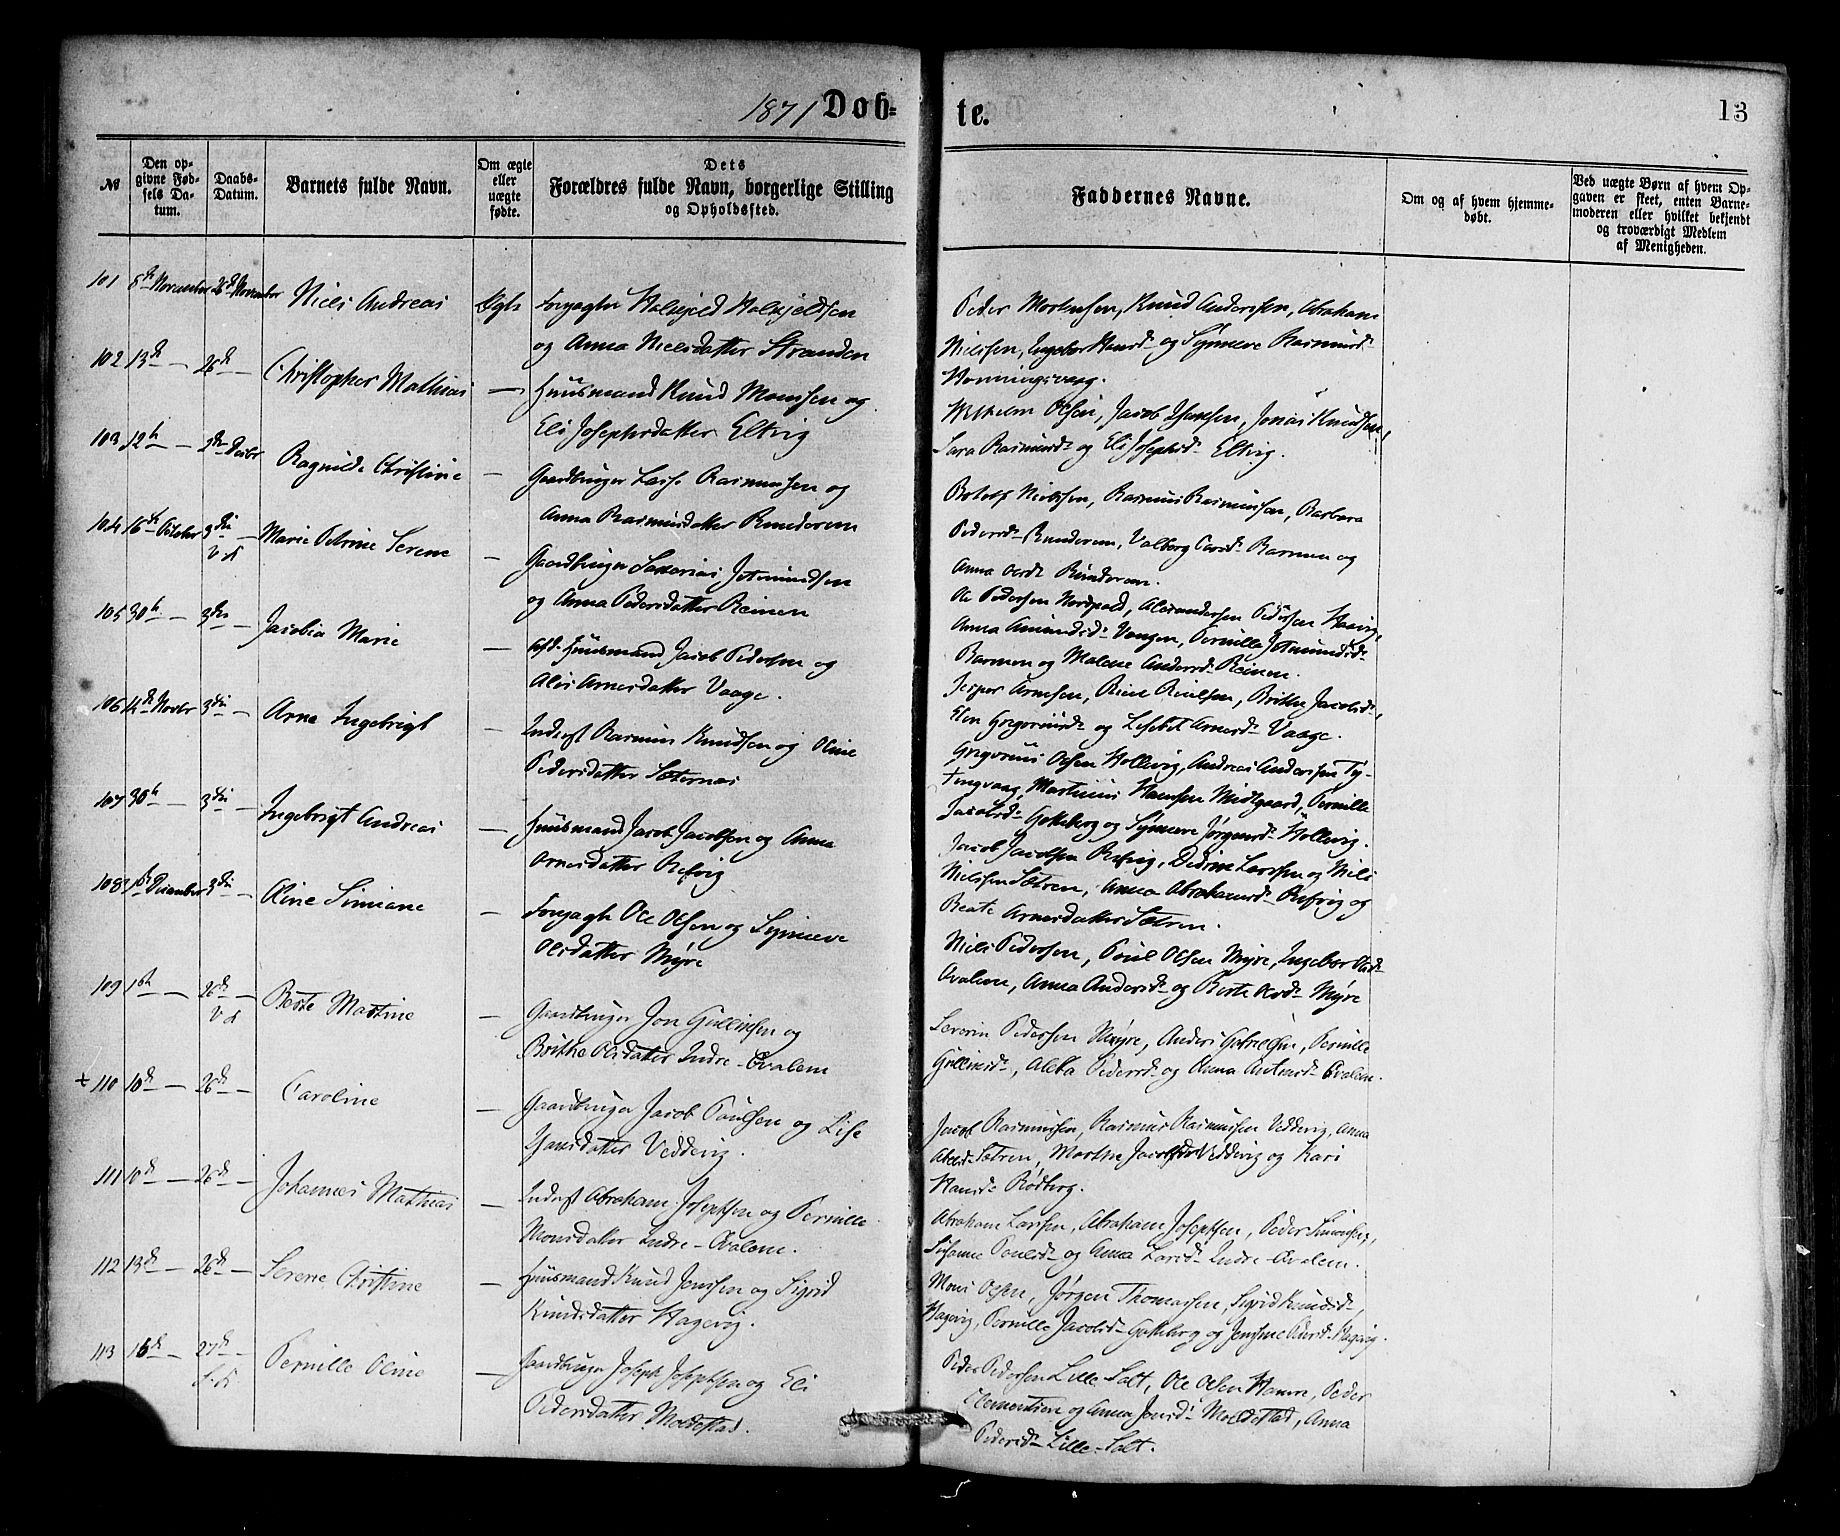 1871 Døb-
te.
13
№
Den op-
givne Fød-
sels Da-
tum.
Daabs-
Datum.
Barnets fulde Navn.
Om ægte
eller
uægte
fødte.
Dets
Forældres fulde Navn, borgerlige Stilling
og Opholdssted.
Faddernes Navne.
Om og af hvem hjemme-
døbt.
Ved uægte Børn af hvem Op-
gaven er skeet, enten Barne-
moderen eller hvilket bekjendt
og troværdigt Medlem
af Menigheden.
101 5te November 26de November Niels Andreas Ægte
og Anna Nielsdatter Stranden
Peder Mortensen, Knud Anderssen, Abraham
Nielssen, Ingebor Hansd. og Synneve Rasmusd.
Honningsvaag.
102 13de — 26de — Christopher Mathias — Huusmand Knud Monssen og
Eli Josephsdatter Eltvig
Wilhelm Olsen, Jacob Hanssen, Jonas Knudsen,
Sara Rasmusd. og Eli Josephsd. Eltvig.
103 12te — 2den Decbr Ragnilde Christine — Gaardbruger Lasse Rasmussen og
Anna Rasmusdatter Runderem
Rasmus Rasmussen, Barbara
Pedersd. Runderem, Valborg Barmen og
Anna Olsd. Runderem.
104 16de October 3die Marie Petrine Serene — Gaardbruger Saxerias Jetmundsen
og Anna Pedersdatter Reinen
Ole Pedersen Nordpold, Alexandersen Pedersen Haavig,
Anna Amundsd. Vangen, Pernille Jetmundsd.
Barmen og Malene Andersd. Reinen.
105 30te — 3die — Jacobia Marie — Huusmand Jacob Pedersen og
Arnesdatter Vaage.
Jesper Arnesen, Brithe Jacobsd.,
Elen Gregoriusd. og Lisebet Arnesd. Vaage.
106 14de Novbr 3die — Arne Ingebrigt — Inderst Rasmus Knudsen og Oline
Pedersdatter Sæternæs
Gregorius Olsen Hollevig, Andreas Anderssen Ty-
tingvaag, Martinus Hanssen Midtgaard, Pernille
Jacobsd. Gotteberg og Synneve Jørgensd. Hollevig.
107 30te — 3die — Ingebrigt Andreas — Huusmand Jacob Jacobsen og Anna
Arnesdatter Refvig
Jacob Jacobsen Refvig, Didrine Larssen og Nils
Nielssen Sætren, Anna Abrahamsd. Refvig og
Beate Arnesdatter Sætren.
108 December 3die — Oline Simiane — Ole Olsen og Synneve
Olsdatter Myre
Niels Pedersen, Poul Olsen Myre, Ingebor Olsd.
Ovalem, Anna Andersd. og Berte Olsd. Myre
109 1ste — 26de — Berte Martine — Gaardbruger Jon Gullikssen og
Brithe Olsdatter Indre-Ovalem
Severin Pedersen Myre, Anders Gabrielsen, Pernille
Gulliksd., Aleta Pedersd. og Anna Antonsd. Ovalem.
110 10de — 26de — Caroline — Gaardbruger Jacob Poulsen og Lise
Hansdatter Vedvig.
Jacob Rasmussen, Rasmus Rasmussen Vedvig, Anna
Abelsd. Sætren, Marthe Jacobsd. Vedvig og Kari
Hansd. Rødberg.
111 10de — 26de — Johannes Mathias — Inderst Abraham Josephsen og Pernille
Monsdatter Indre-Ovalem.
Abraham Larssen, Abraham Josephsen, Peder Simonsen,
Susanne Poulsd. og Anna Larsd. Indre Ovalem.
112 13de — 26de — Serene Christine — Huusmand Knud Jenssen og Sigrid
Knudsdatter Hagevig.
Mons Olsen, Jørgen Thomassen, Sigrid Knudsd.,
Hagevig, Pernille Jacobsd. Gotteberg og Jensine Pedersd. Hagevig.
113 16de — 27de — Pernille Oline — Gaardbruger Joseph Josephsen og Eli
Pedersdatter Moldestad.
Peder Pedersen Lille-Salt, Ole Olsen Hamre, Peder
Clementsen og Anna Jonsd. Moldestad, Anna
Pedersd. Lille-Salt.